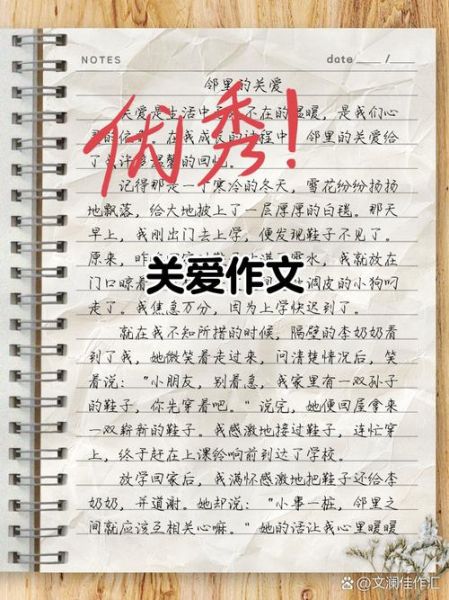 NOTES
date ___ / ___
邻里的关爱
关爱是生活中不在的温暖，是我们心
在我成长的过程中，邻里的关爱给
了的回忆。
优秀！
记得那是一个寒冷的冬天，雪花纷纷扬扬
地飘落，给大地披上了一层厚厚的白毯。那天
早上，我刚出门去上学，便发现鞋子不见了。
原来，水，我就放在
关爱作文
门口晾着调皮的小狗叼
走了。我焦急万分，因为上学快迟到了。
就在我不知所措的时候，隔壁的李奶奶看
到了我，她微笑着走过来，问清楚情况后，笑
着说：“小朋友，别着急，我家里有一双孙子
的鞋子，你先穿着吧。”说完，她便回屋拿来
一双崭新的鞋子。我感激地接过鞋子，连忙穿
上，终于赶在上课铃响前到达了学校。
放学回家后，我满怀感激地把鞋子还给李
奶奶，并道谢。她却说：“小事一桩，邻里之
间就应该互相关心嘛。”她的话让我心里暖暖
@文澜佳作汇